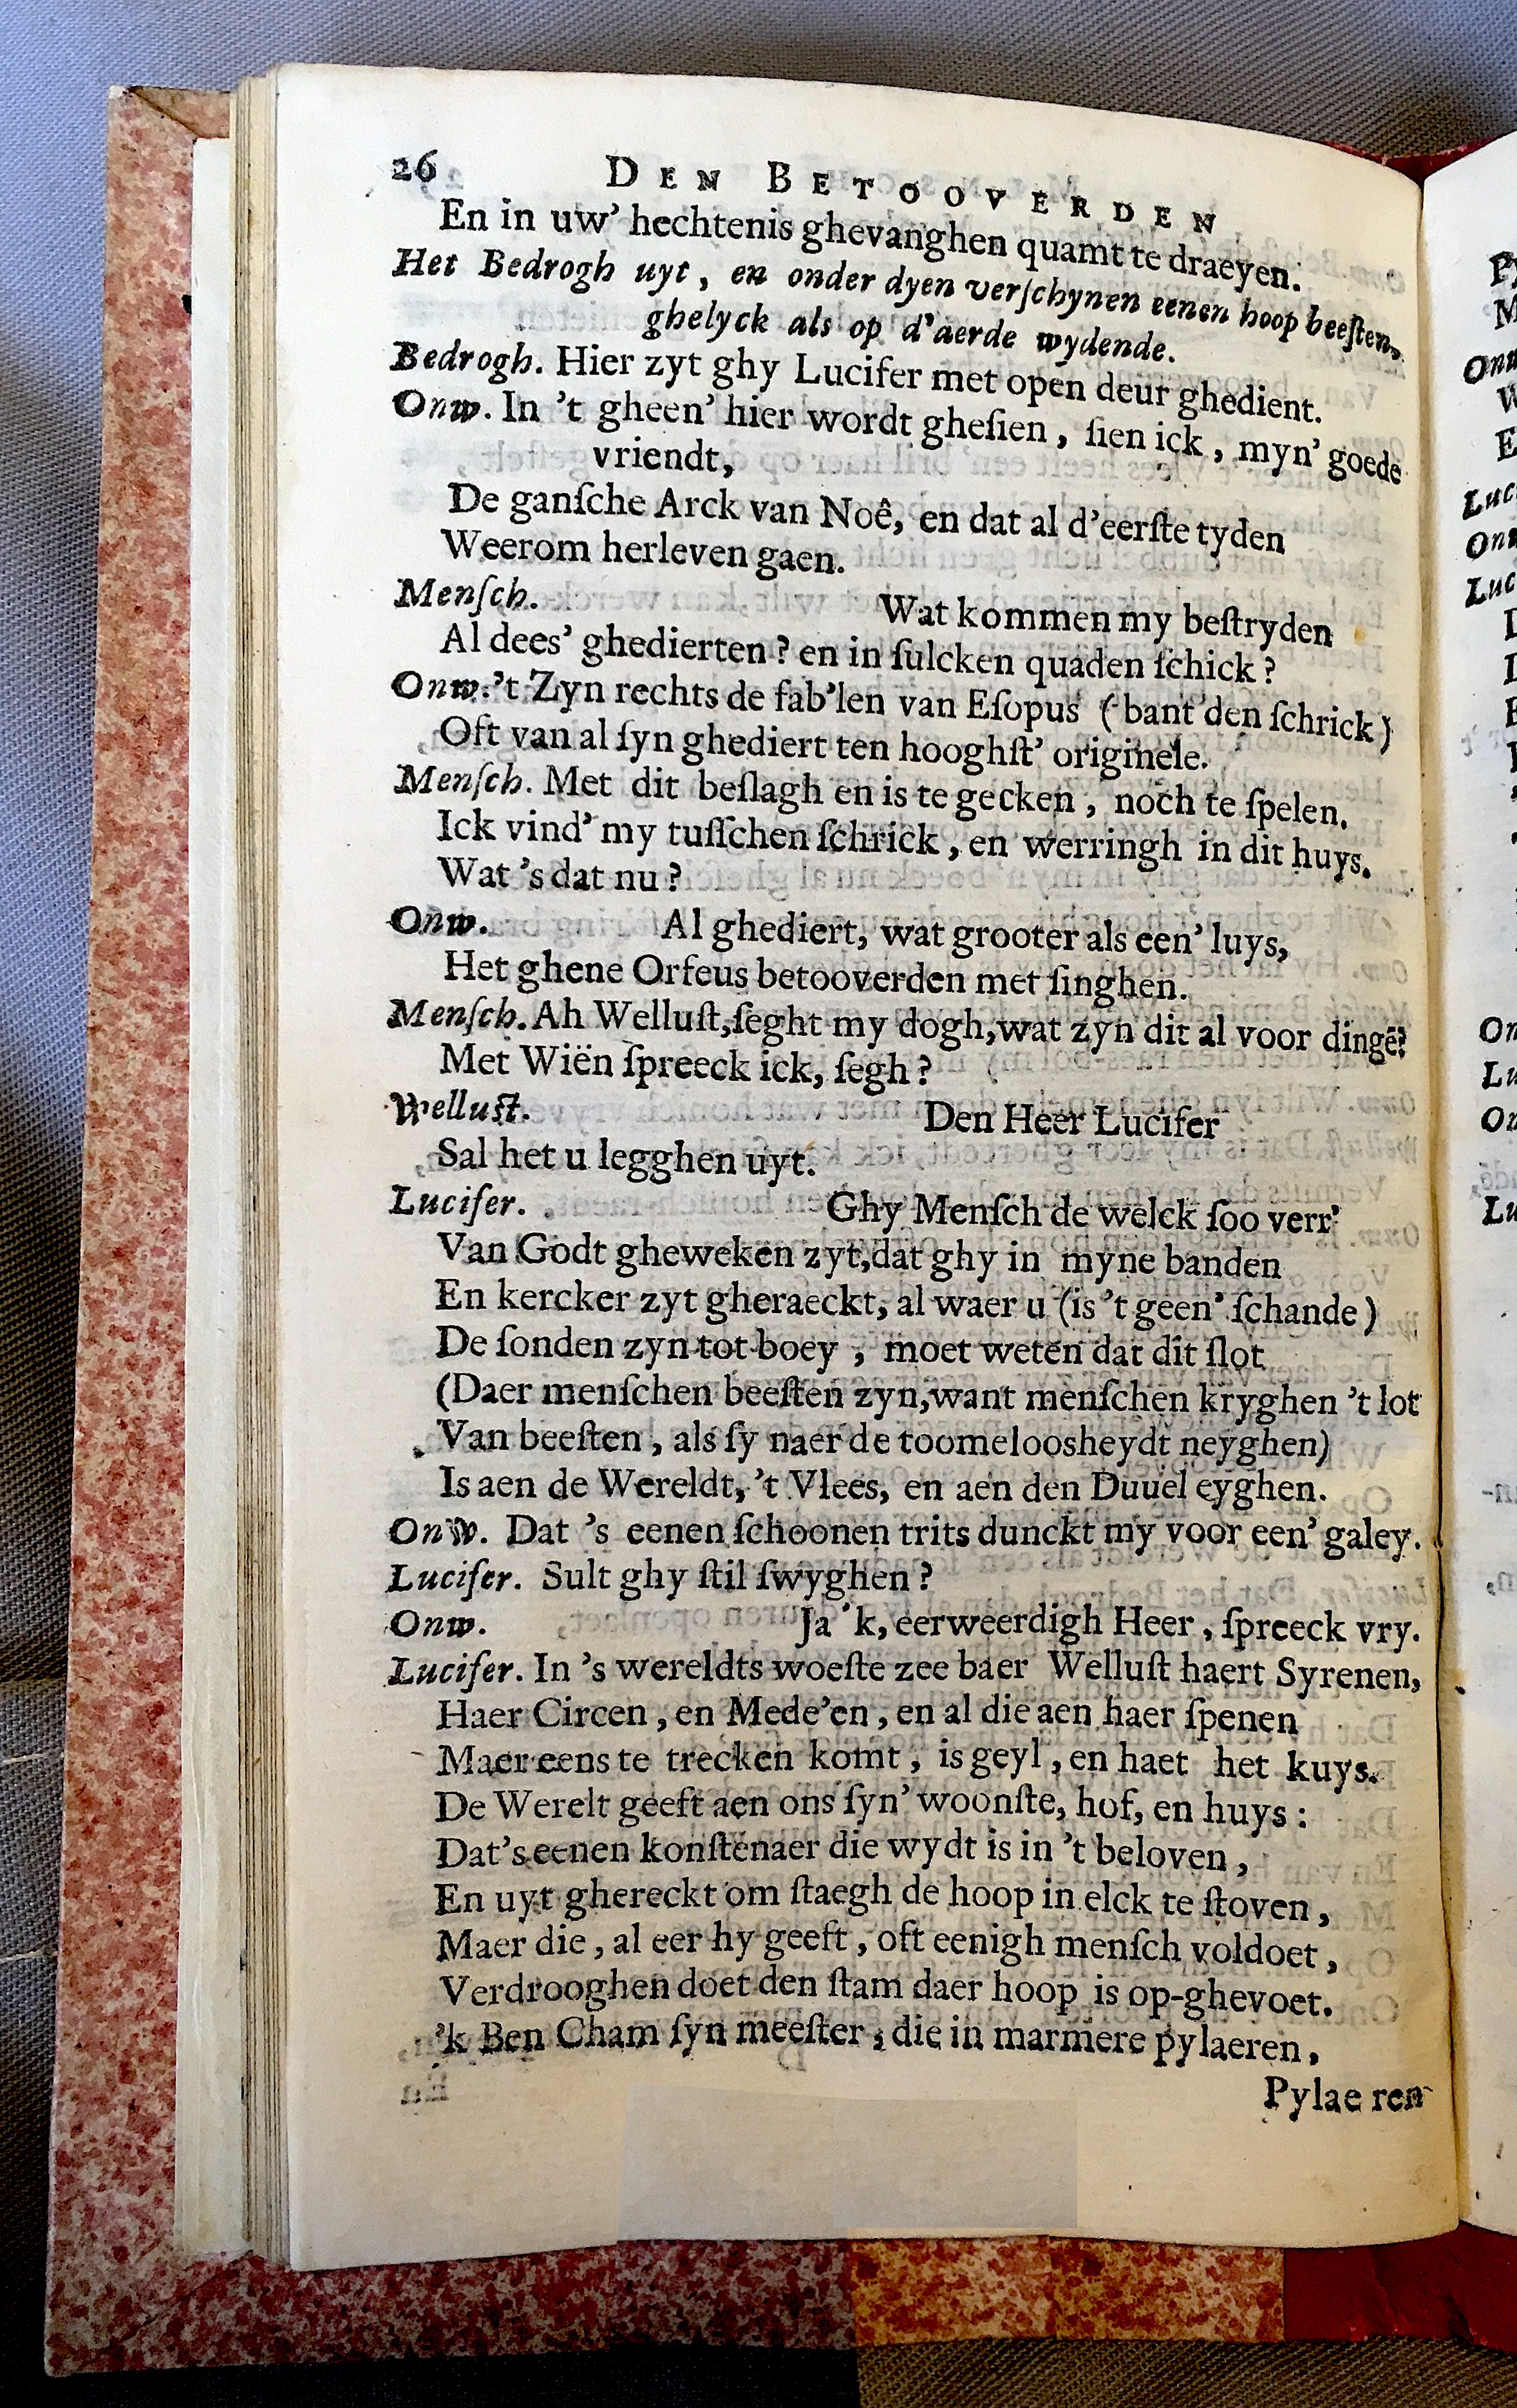 26 DEN BETOOVERDEN
En in uw' hechtenis ghevanghen quamt te draeyen.
Het Bedrogh uyt, en onder dyen verſchynen eenen hoop beeſten,
ghelyck als op d'aerde wydende.
Bedrogh. Hier zyt ghy Lucifer met open deur ghedient.
Onw. In 't gheen' hier wordt gheſien, ſien ick, myn' goede
vriendt,
De ganſche Arck van Noê, en dat al d'eerſte tyden
Weerom herleven gaen.
Menſch. Wat kommen my beſtryden
Al dees' ghedierten? en in ſulcken quaden ſchick?
Onw. 't Zyn rechts de fab'len van Eſopus (bant den ſchrick)
Oft van al ſyn ghediert ten hooghſt' originele.
Menſch. Met dit beſlagh en is te gecken, noch te ſpelen.
Ick vind' my tuſſchen ſchrick, en werringh in dit huys.
Wat 's dat nu?
Onw. Al ghediert, wat grooter als een' luys,
Het ghene Orfeus betooverden met ſinghen.
Menſch. Ah Welluſt, ſeght my dogh, wat zyn dit al voor dingē?
Met Wiën ſpreeck ick, ſegh?
Welluſt. Den Heer Lucifer
Sal het u legghen uyt.
Lucifer. Ghy Menſch de welck ſoo verr'
Van Godt gheweken zyt, dat ghy in myne banden
En kercker zyt gheraeckt, al waer u (is 't geen' ſchande)
De ſonden zyn tot boey, moet weten dat dit ſlot
(Daer menſchen beeſten zyn, want menſchen kryghen 't lot
Van beeſten, als ſy naer de toomeloosheydt neyghen)
Is aen de Wereldt, 't Vlees, en aen den Duuel eyghen.
Onw. Dat 's eenen ſchoonen trits dunckt my voor een' galey.
Lucifer. Sult ghy ſtil ſwyghen?
Onw. Ja 'k, eerweerdigh Heer, ſpreeck vry.
Lucifer. In 's wereldts woeſte zee baer Welluſt haert Syrenen,
Haer Circen, en Mede'en, en al die aen haer ſpenen
Maer eens te trecken komt, is geyl, en haet het kuys.
De Werelt geeft aen ons ſyn' woonſte, hof, en huys:
Dat's eenen konſtenaer die wydt is in 't beloven,
En uyt ghereckt om ſtaegh de hoop in elck te ſtoven,
Maer die, al eer hy geeft, oft eenigh menſch voldoet,
Verdrooghen doet den ſtam daer hoop is op-ghevoet.
'k Ben Cham ſyn meeſter, die in marmere pylaeren,
Pylae ren